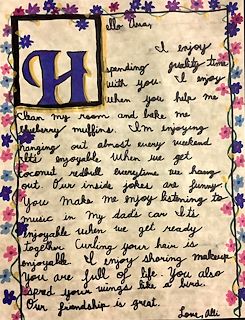 Hello Ama,
I enjoy
spending quality time
with you. I enjoy
when you help me
Clean my room and bake me
blueberry muffins. I'm enjoying
hanging out almost every weekend
It's enjoyable when we get
coconut redbull everytime we hang
out. Our inside jokes are funny.
You make me enjoy listening to
music in my dad's car. It's
enjoyable when we get ready
together. Curling your hair is
enjoyable. I enjoy sharing makeup
you are full of life. You also
spread your wings like a bird.
Our friendship is great.
Love, Alli